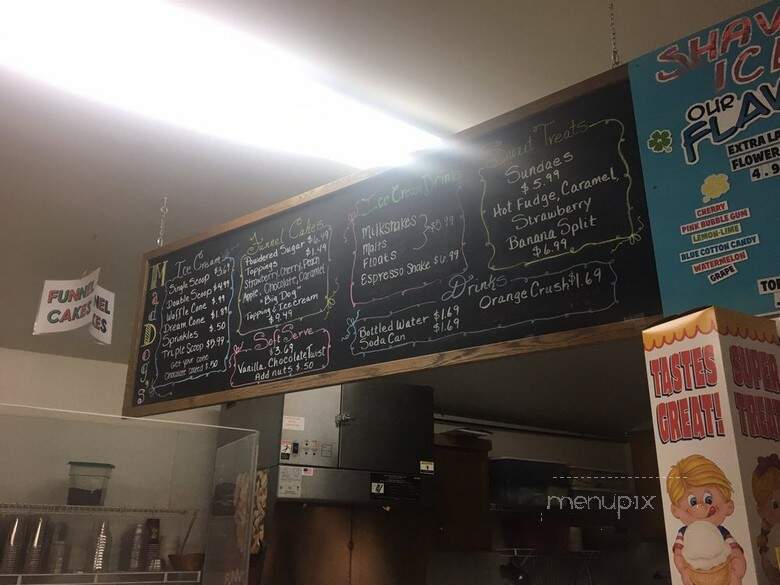 Mad Dogs
Ice Cream
Single Scoop $3.69
Double Scoop $4.99
Waffle Cone $.99
Dream Cone $1.99
Sprinkles $.50
Triple Scoop $5.99
Get your cone
Chocolate Coated $.50
Funnel Cakes
Powdered Sugar
Toppings $1.49
Strawberry, Cherry, Peach
Apple, Chocolate, Caramel
"Big Dog"
Topping & Icecream
$9.49
Soft Serve
$3.69
Vanilla, Chocolate, Twist
Add nuts $.50
Ice Cream Drinks
Milkshakes
Malts
Floats
$5.99
Espresso Shake $6.99
Sweet Treats
Sundaes
$5.99
Hot Fudge, Caramel,
Strawberry
Banana Split
$6.99
Drinks
Bottled Water $1.69
Soda Can $1.69
Orange Crush $1.69
FUNNEL
CAKES
NEL
ES
SHAV
ICE
OUR
FLAV
EXTRA LA
FLOWER
4.9
CHERRY
PINK BUBBLE GUM
LEMON-LIME
BLUE COTTON CANDY
WATERMELON
GRAPE
TASTES
GREAT!
SUPER
TREA
menupix